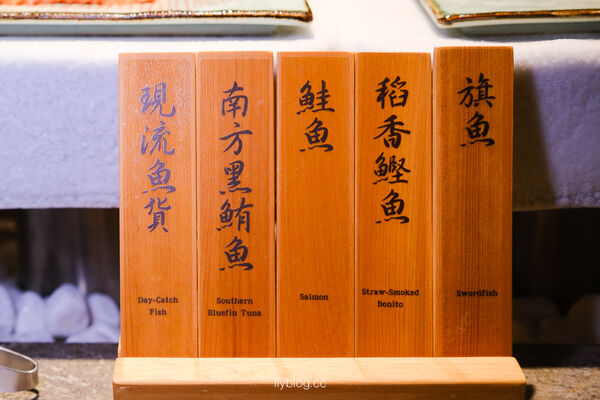 現流魚貨
Day-Catch
Fish
南方黑鮪魚
Southern
Bluefin Tuna
鮭魚
Salmon
稻香鰹魚
Straw-Smoked
Bonito
旗魚
Swordfish
llyblog.cc